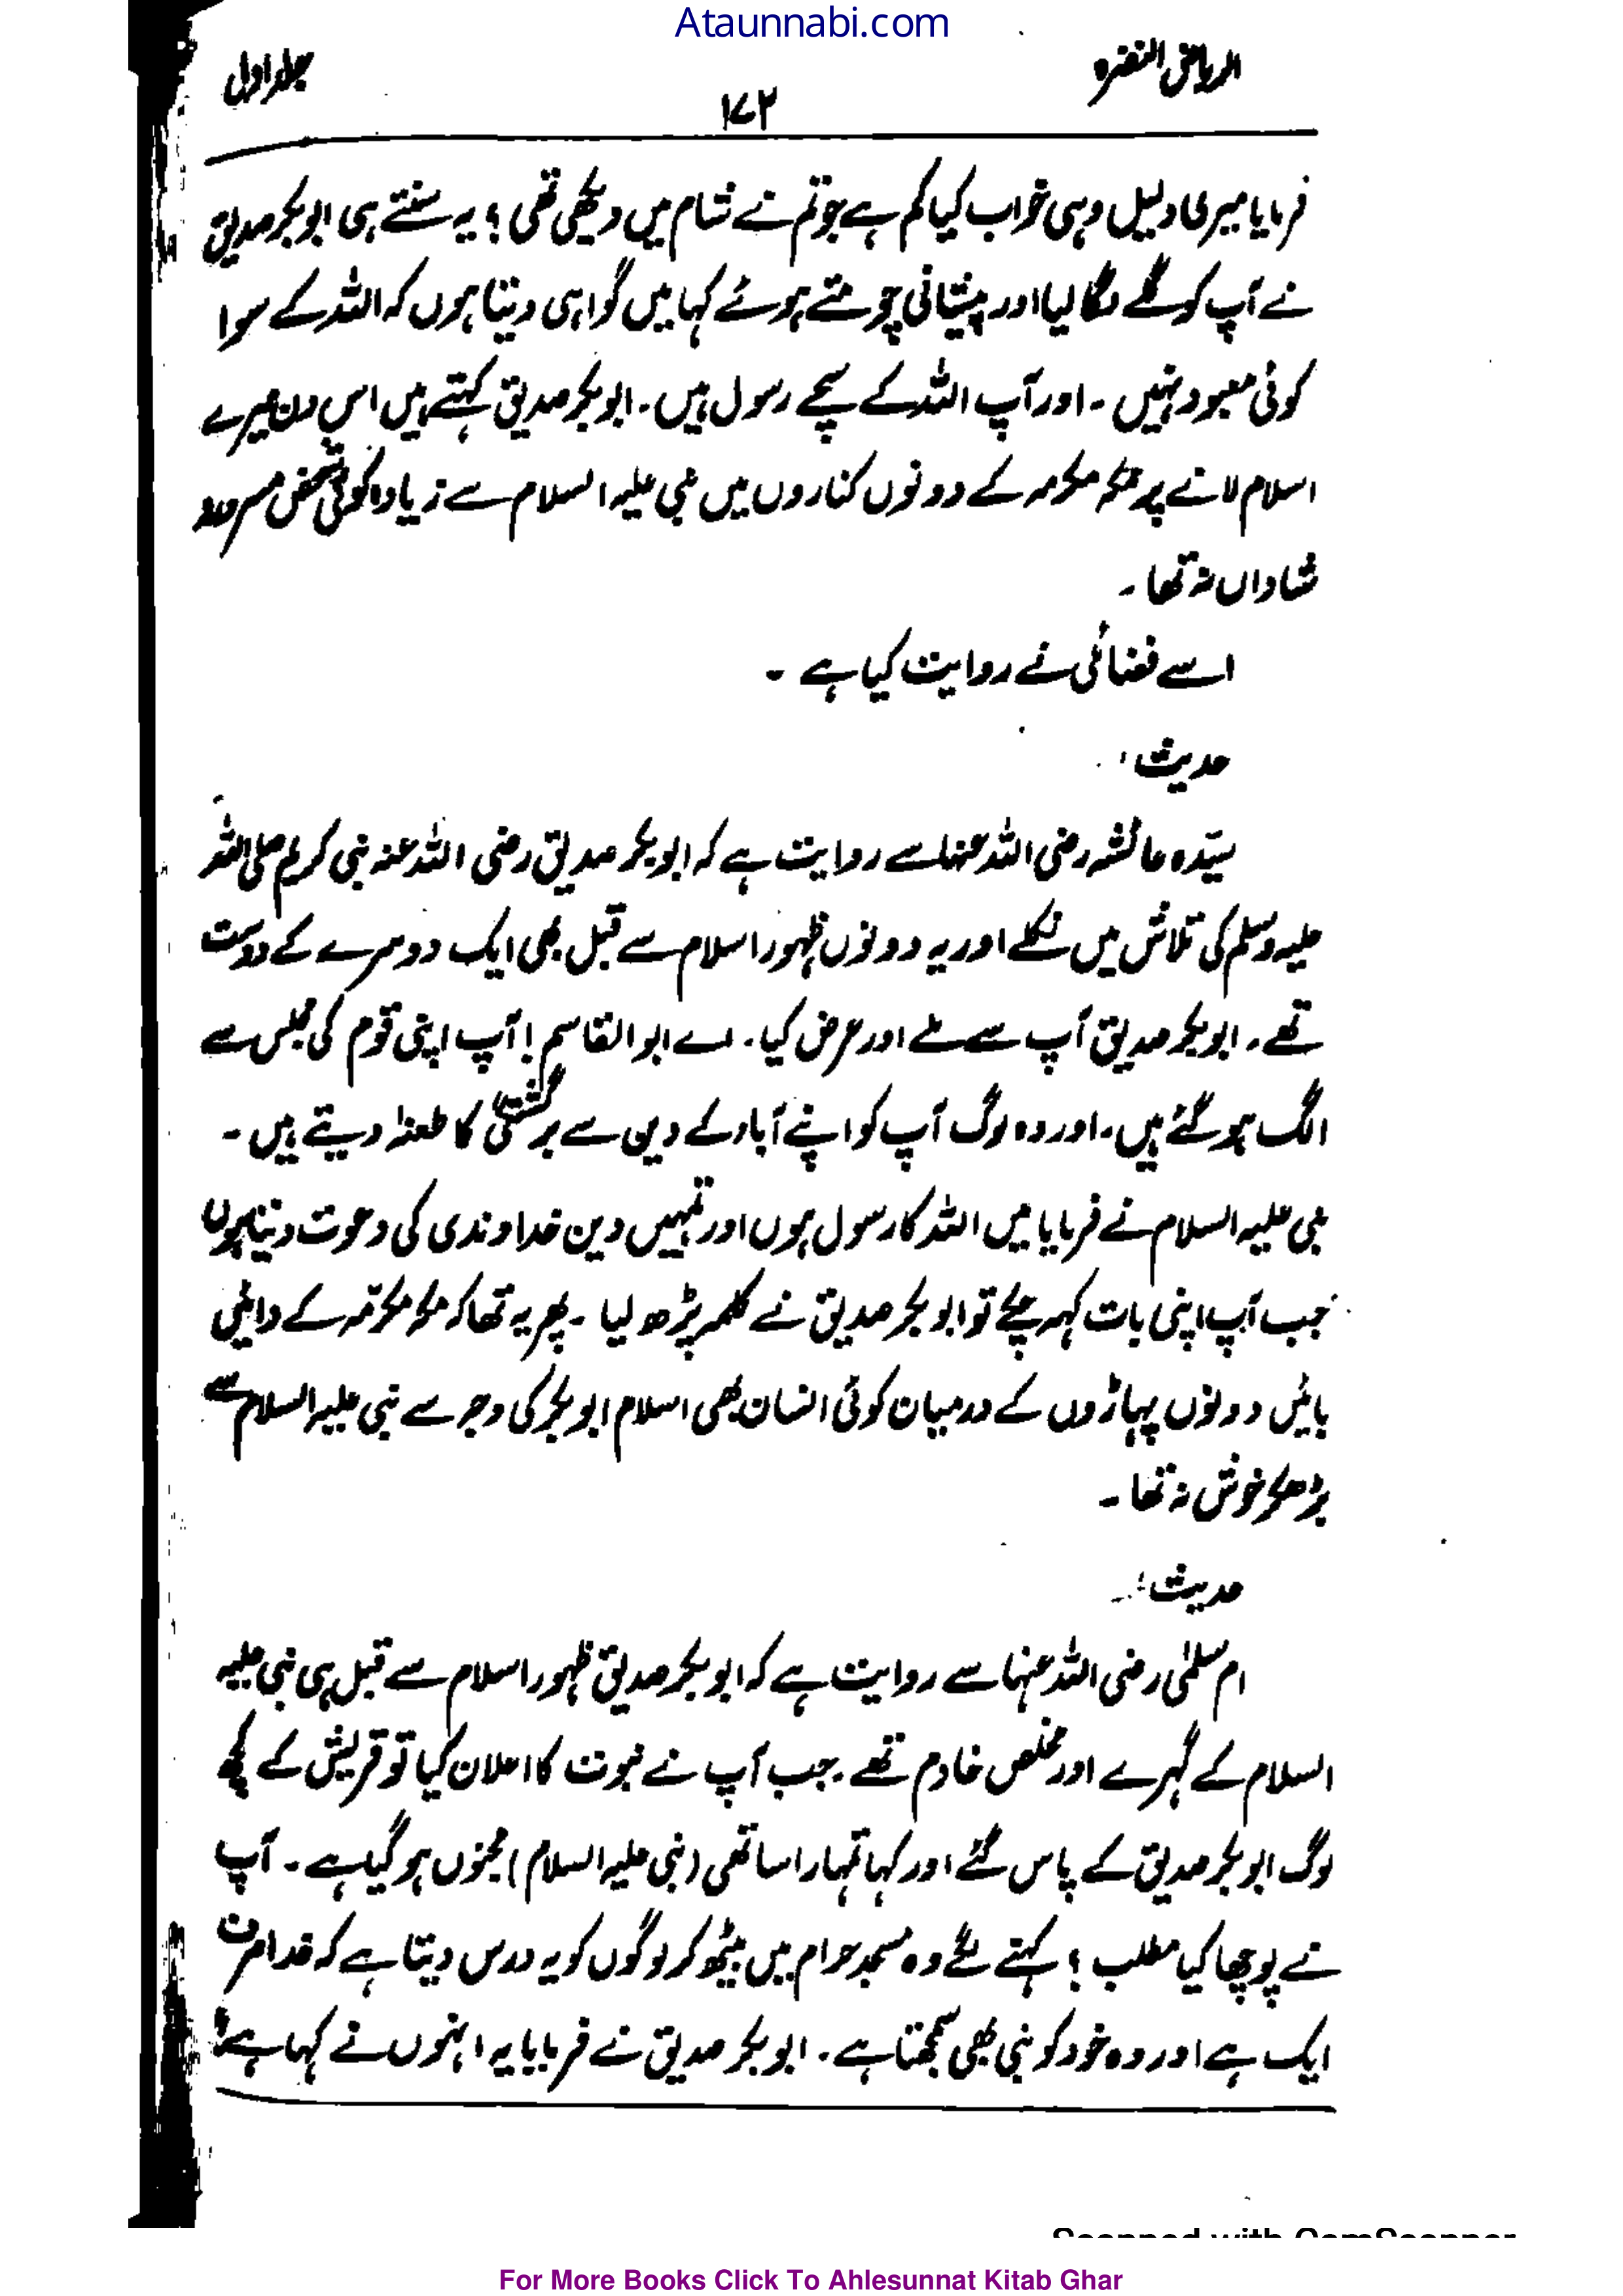 Ataunnabi.com
الریاض النضرہ
۱۷۲
جلد اول
فرمایا میری دلیل وہی خواب کیا کم ہے جو تم نے شام میں دیکھی تھی ؟ یہ سنتے ہی ابوبکر صدیق
نے آپ کو گلے لگا لیا اور پیشانی چومتے ہوئے کہا میں گواہی دیتا ہوں کہ اللہ کے سوا
کوئی معبود نہیں ۔ اور آپ اللہ کے سچے رسول ہیں ۔ ابوبکر صدیق کہتے ہیں اس دن میرے
اسلام لانے پر مکہ مکرمہ کے دونوں کناروں میں نبی علیہ السلام سے زیادہ کوئی شخص مسرور
شاداں نہ تھا ۔
اسے فضائلی نے روایت کیا ہے ۔
حدیث :
سیّدہ عائشہ رضی اللہ عنہا سے روایت ہے کہ ابوبکر صدیق رضی اللہ عنہ نبی کریم صلی اللہ
علیہ وسلم کی تلاش میں نکلے اور یہ دونوں ظہور اسلام سے قبل بھی ایک دوسرے کے دوست
تھے ۔ ابوبکر صدیق آپ سے ملے اور عرض کیا ۔ اے ابوالقاسم ! آپ اپنی قوم کی مجلس سے
الگ ہو گئے ہیں ۔ اور وہ لوگ آپ کو اپنے آباء کے دین سے برگشتگی کا طعنہ دیتے ہیں ۔
نبی علیہ السلام نے فرمایا میں اللہ کا رسول ہوں اور تمہیں دین خداوندی کی دعوت دیتا ہوں
جب آپ اپنی بات کہہ چکے تو ابوبکر صدیق نے کلمہ پڑھ لیا ۔ پھر یہ تھا کہ مکہ مکرّمہ کے دائیں
بائیں دونوں پہاڑوں کے درمیان کوئی انسان بھی اسلام ابوبکر کی وجہ سے نبی علیہ السلام سے
بڑھ کر خوش نہ تھا ۔
حدیث :
ام سلمیٰ رضی اللہ عنہا سے روایت ہے کہ ابوبکر صدیق ظہور اسلام سے قبل ہی نبی علیہ
السلام کے گہرے اور مخلص خادم تھے ۔ جب آپ نے نبوت کا اعلان کیا تو قریش کے کچھ
لوگ ابوبکر صدیق کے پاس گئے اور کہا تمہارا ساتھی (نبی علیہ السلام) مجنوں ہو گیا ہے ۔ آپ
نے پوچھا کیا مطلب ؟ کہنے لگے وہ مسجد حرام میں بیٹھ کر لوگوں کو یہ درس دیتا ہے کہ خدا صرف
ایک ہے اور وہ خود کو نبی بھی سمجھتا ہے ۔ ابوبکر صدیق نے فرمایا یہ انہوں نے کہا ہے ؟
Scanned with CamScanner
For More Books Click To Ahlesunnat Kitab Ghar